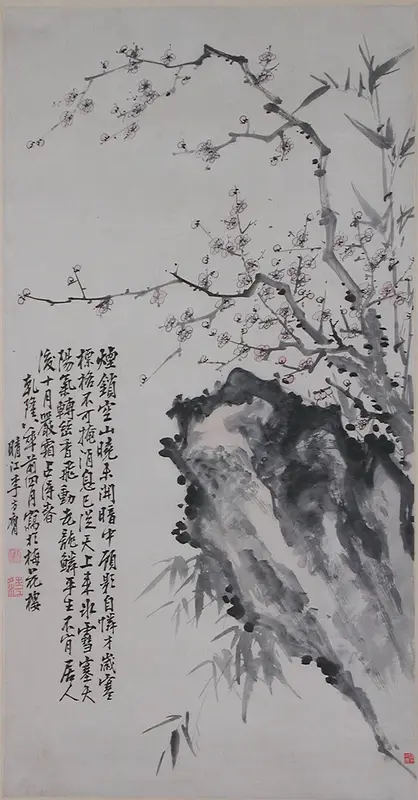 煙鎖空山曉未開暗中顧影自憐才歲寒
標格不可掩消息已從天上來氷雪塞天
陽氣轉香飛動老龍鱗平生不肯居人
後十月嚴霜占得春
乾隆前四月寫於梅花樓
晴江李方膺